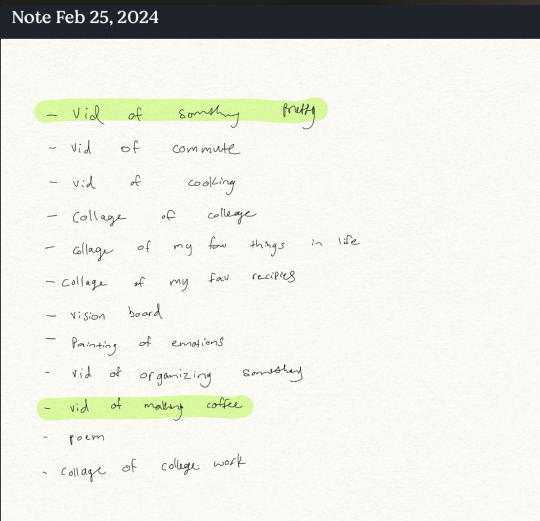 Note Feb 25, 2024
- Vid of somethy Pretty
- Vid of commute
- vid of cooking
- Collage of college
- collage of my fav things in life
- collage of my fav recipies
- vision board
- Painting of emotions
- vid of organizing somethey
- vid of making coffee
- poem
- collage of college work